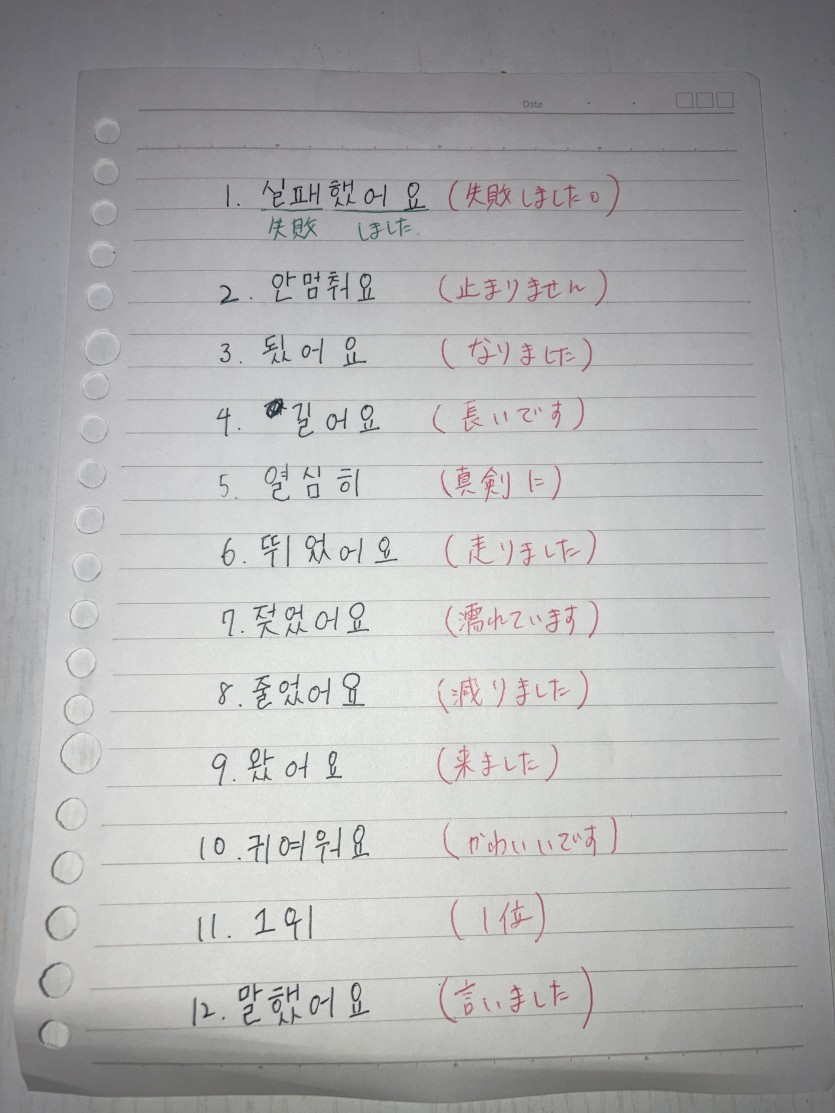 Date
1. 실패했어요 (失敗しました。)
失敗 しました.
2. 안멈춰요 (止まりません)
3. 됬어요 (なりました)
4. 길어요 (長いです)
5. 열심히 (真剣に)
6. 뛰었어요 (走りました)
7. 젖었어요 (濡れています)
8. 줄었어요 (減りました)
9. 왔어요 (来ました)
10. 귀여워요 (かわいいです)
11. 1위 (1位)
12. 말했어요 (言いました)